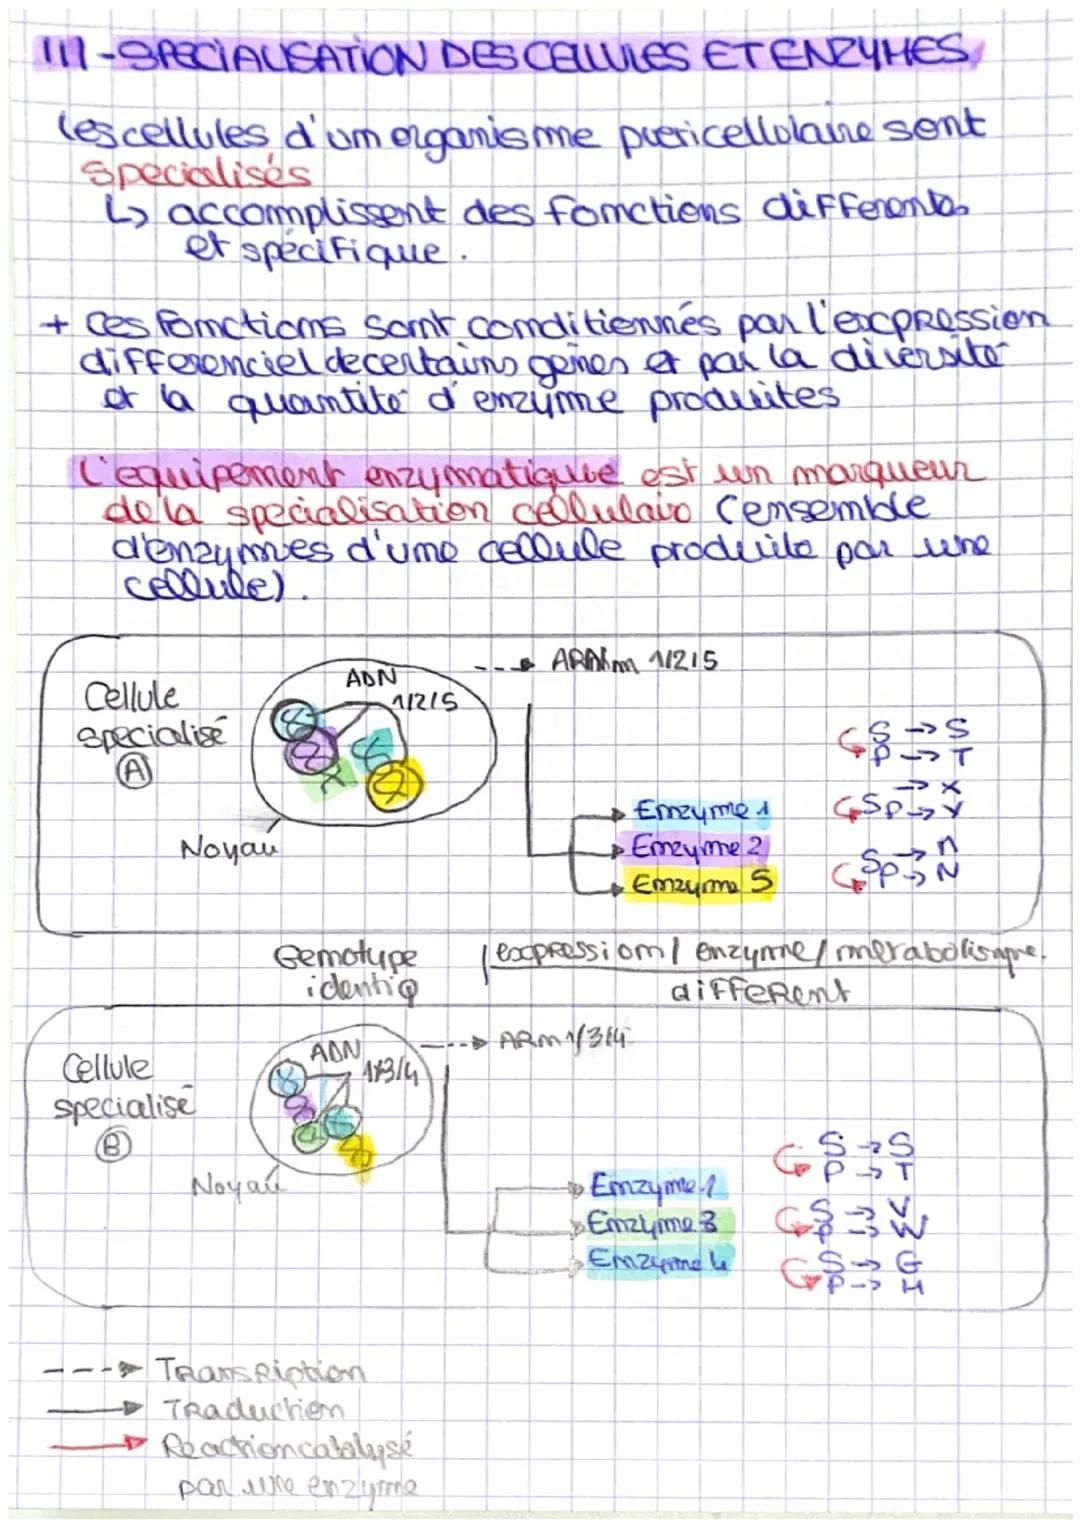 III - SPECIALISATION DES CELLULES ET ENZYMES
les cellules d'um organisme puericellulaire sont
specialisés
↳ accomplissent des fonctions differents
et spécifique.
+ ces fonctions sont conditiennés par l'expression
differenciel de certains genes et par la diversité
et la quantité d'enzyme produites
L'equipement enzymatique est un marqueur
de la specialisation cellulair (ensemble
d'enzymes d'une cellule produite par une
cellule).
Cellule
specialisé
A
ADN
1/2/5
Noyau
ARNm 1/2/5
Enzyme 1
Enzyme 2
Enzyme 5
S → S
P → T
→ X
SP → Y
S → n
P → N
Genotype
identiq
expression / enzyme / metabolisme.
different
Cellule
specialisé
B
ADN
1/3/4
Noyau
ARm 1/3/4
Enzyme 1
Enzyme 3
Enzyme 4
S → S
P → T
S → V
P → W
S → G
P → H
Transription
Traduction
Reaction catalysé
par une enzyme